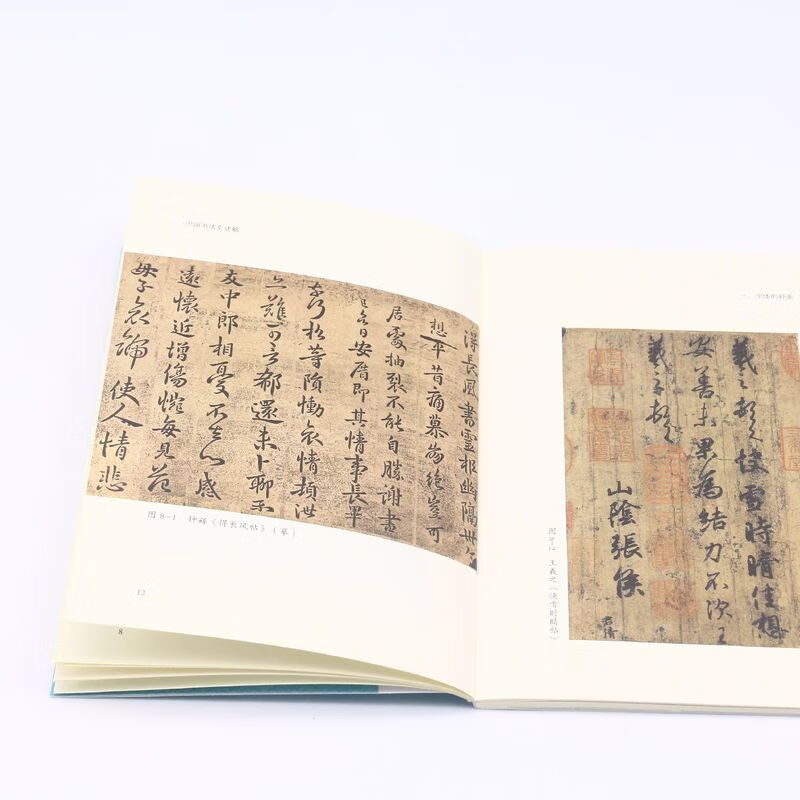 中国书法史述略
得長風書靈根幽隔卅年
想平昔痛慕崩絕豈可
居處抽裂不能自勝謝書
日安厝即其情事長畢
松等隕慟哀情頓泄
難可言郗還未卜聊示
友中郎相憂不去心感
遠懷近增傷惋每見范
母子哀號使人情悲
图 8-1 钟繇《得长风帖》（摹）
12
8
一、字体的种类
羲之頓首快雪時晴佳想
安善未果為結力不次王
羲之頓首
山陰張侯
君倩
图 8-2 王羲之《快雪时晴帖》